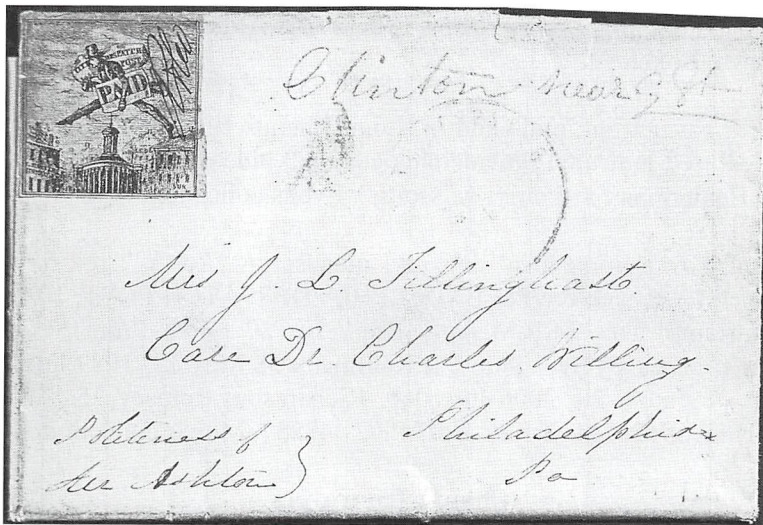 PAID
Clinton near 9 St
Mrs J. L. Tillinghast.
Care Dr. Charles Willing.
Philadelphia
Pa
Politeness of
Ashton